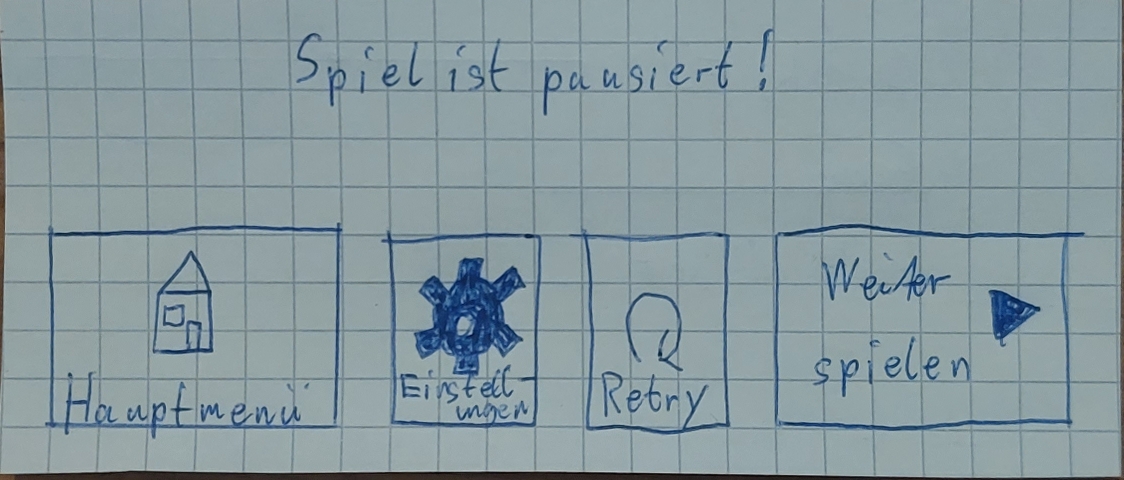 Spiel ist pausiert!
Hauptmenü
Einstell-
ungen
Retry
Weiter
spielen